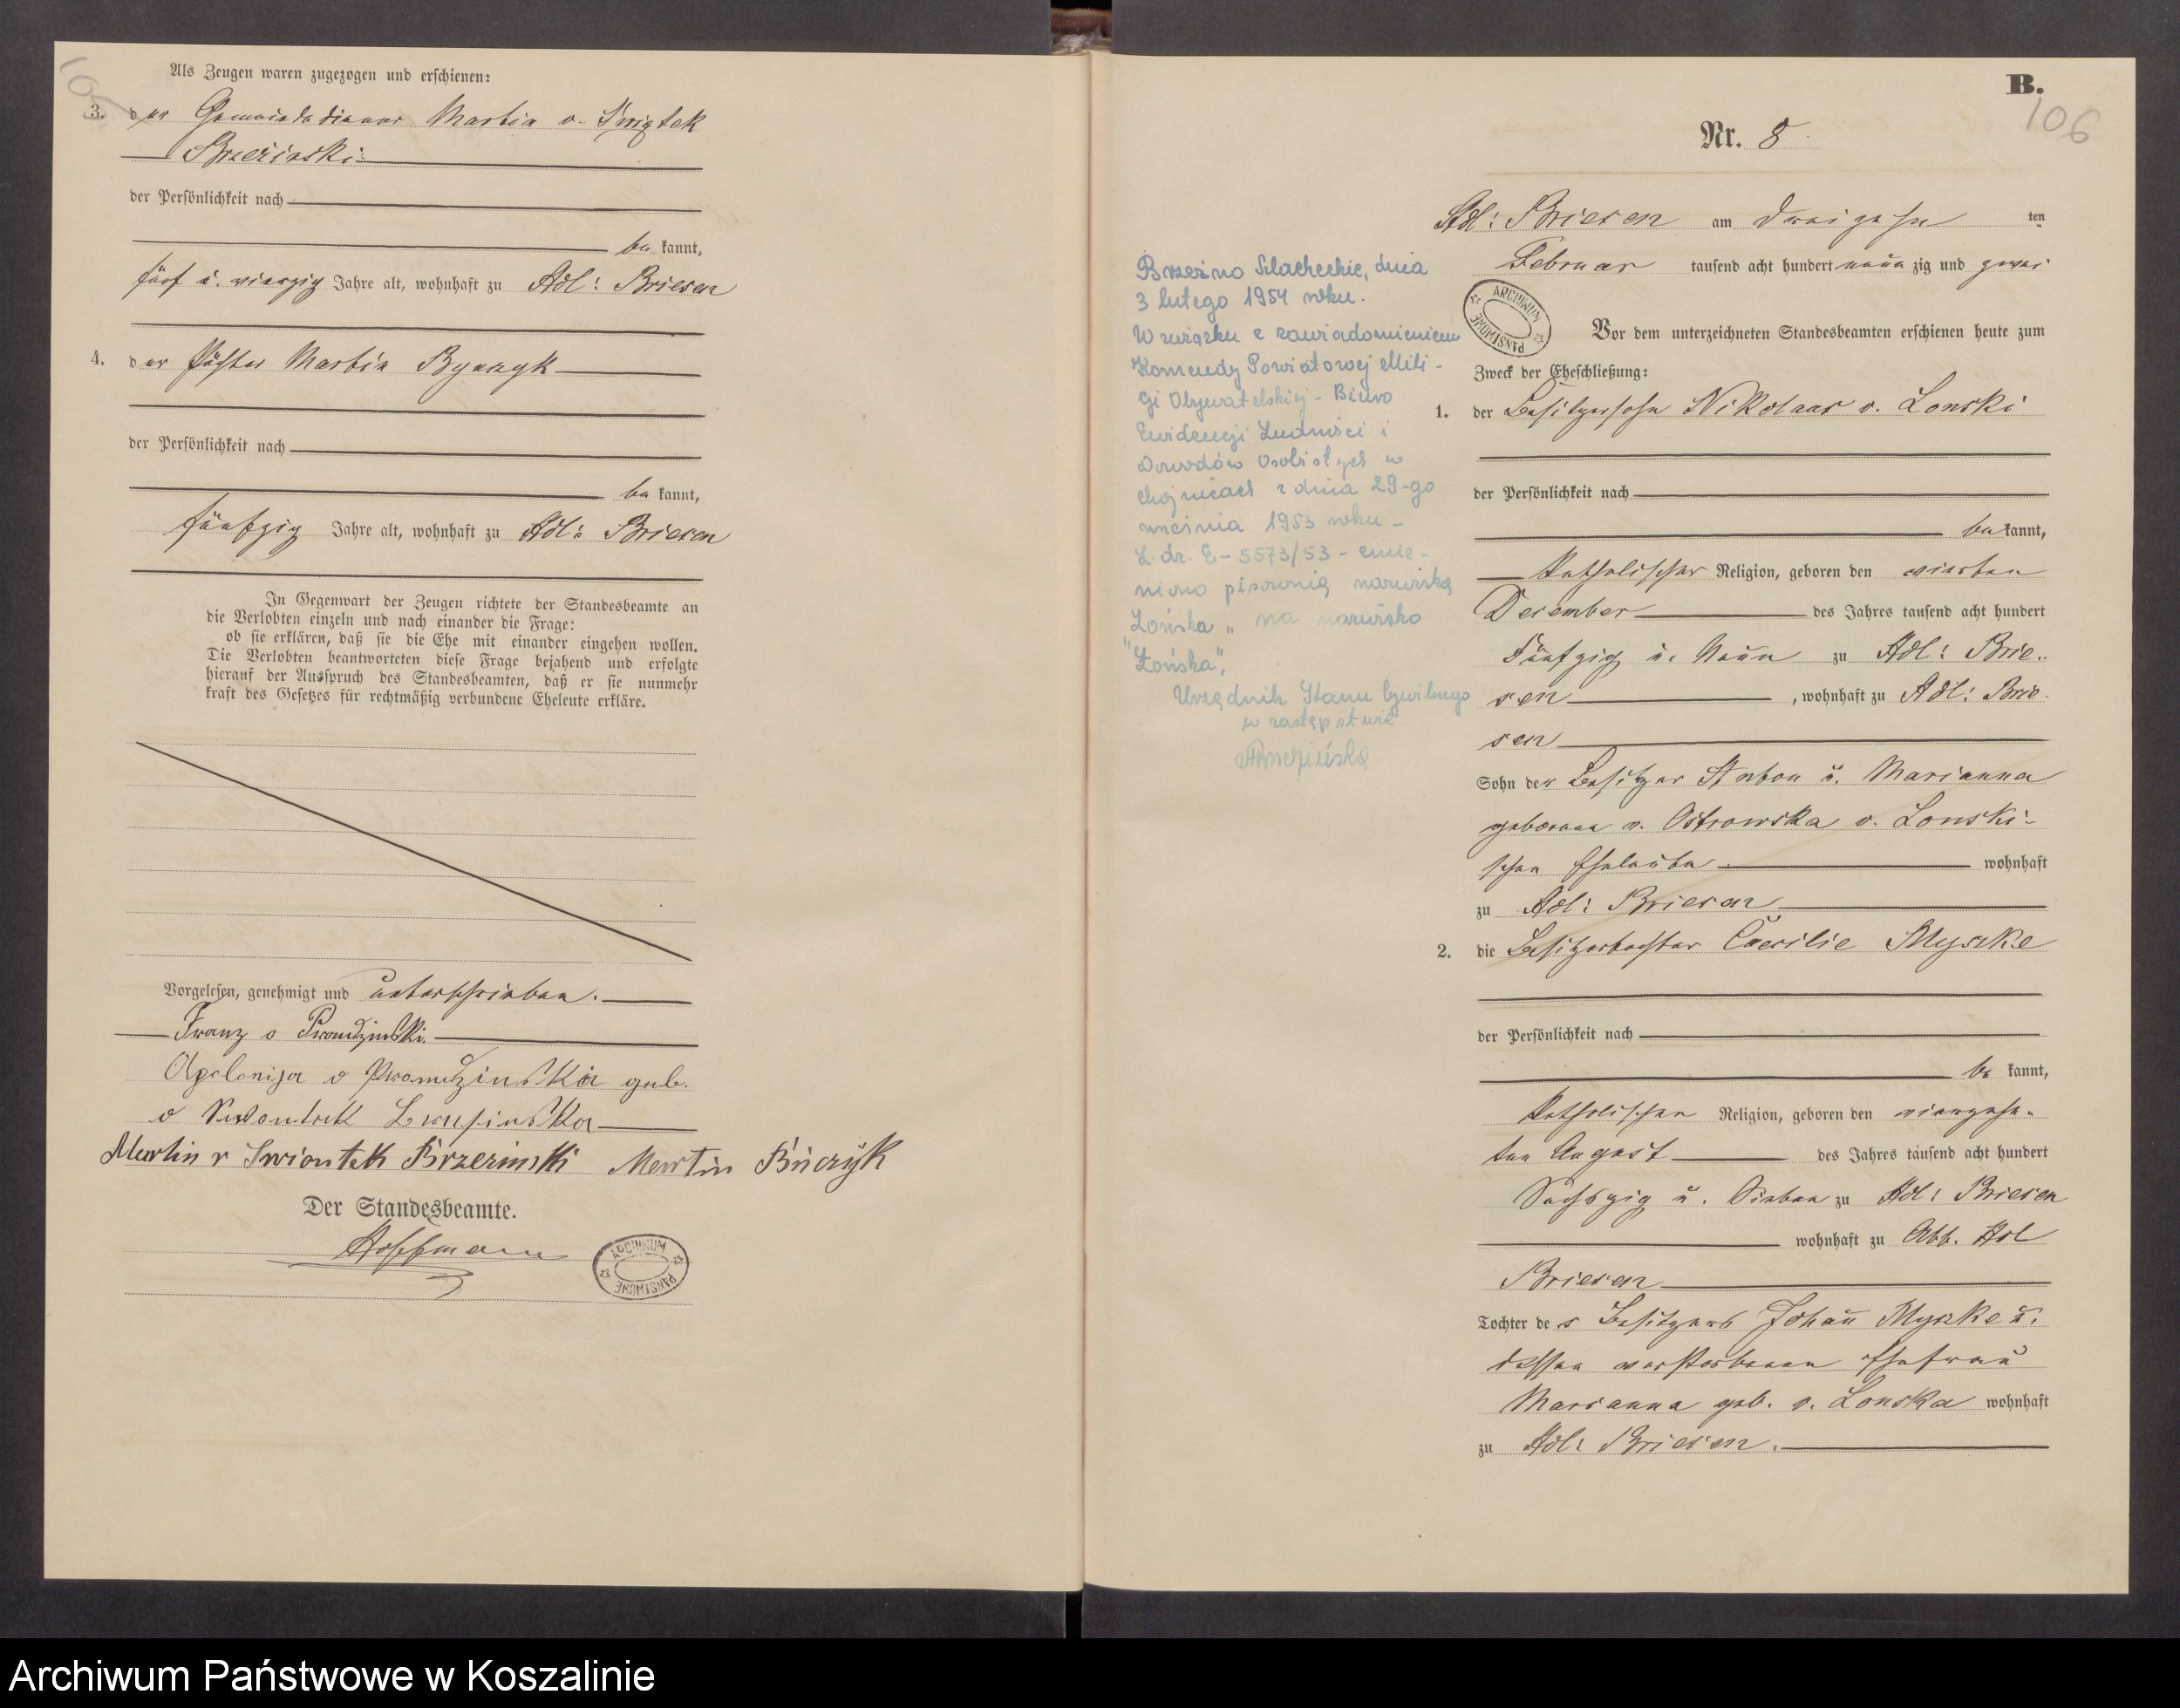 105
Als Zeugen waren zugezogen und erschienen:
3. der Gemeindediener Martin v. Świątek
Brzeźinski
der Persönlichkeit nach
be kannt,
fünf u. vierzig Jahre alt, wohnhaft zu Adl: Briesen
4. der Pächter Martin Bynzyk
der Persönlichkeit nach
be kannt,
fünfzig Jahre alt, wohnhaft zu Adl: Briesen
In Gegenwart der Zeugen richtete der Standesbeamte an
die Verlobten einzeln und nach einander die Frage:
ob sie erklären, daß sie die Ehe mit einander eingehen wollen.
Die Verlobten beantworteten diese Frage bejahend und erfolgte
hierauf der Ausspruch des Standesbeamten, daß er sie nunmehr
kraft des Gesetzes für rechtmäßig verbundene Eheleute erkläre.
Vorgelesen, genehmigt und unterschrieben.
Franz v Prondzinski.
Apolonija v Prondzinska geb.
v
Martin v Swiontek Brzezinski Martin Binczyk
Der Standesbeamte.
Hoffmann
ARCHIWUM PAŃSTWOWE
B.
106
Nr. 8
Adl: Briesen am dreizehn ten
Februar tausend acht hundert neun zig und zwei
ARCHIWUM PAŃSTWOWE
Vor dem unterzeichneten Standesbeamten erschienen heute zum
Zweck der Eheschließung:
1. der Besitzersohn Nikolaus v. Lonski
der Persönlichkeit nach
be kannt,
katholischer Religion, geboren den vierten
Dezember des Jahres tausend acht hundert
fünfzig u. neun zu Adl: Brie-
sen , wohnhaft zu Adl: Brie-
sen
Sohn der Besitzer Anton u. Marianna
geborene v. Ostrowska v. Lonski-
schen Eheleute wohnhaft
zu Adl: Briesen
2. die Besitzertochter Caecilie Myszke
der Persönlichkeit nach
be kannt,
katholischen Religion, geboren den vierzehn-
ten August des Jahres tausend acht hundert
sechszig u. sieben zu Adl: Briesen
wohnhaft zu Abb. Adl
Briesen
Tochter des Besitzers Johann Myszke u.
dessen verstorbenen Ehefrau
Marianna geb. v. Lonska wohnhaft
zu Adl: Briesen.
Brzeźno Szlacheckie, dnia
3 lutego 1954 roku.
W związku z zawiadomieniem
Komendy Powiatowej Mili-
cji Obywatelskiej - Biuro
Ewidencji Ludności i
Dowodów Osobistych w
Chojnicach z dnia 29-go
września 1953 roku -
L. dz. E-5573/53 - zmie-
niono pisownię nazwiska
"Lońska" na nazwisko
"Łońska".
Urzędnik Stanu Cywilnego
w zastępstwie
Archiwum Państwowe w Koszalinie